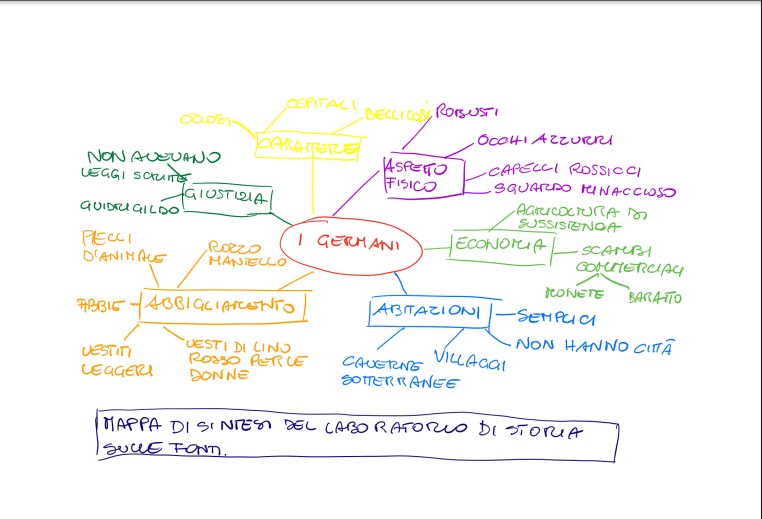 OSPITALI
BELLICOSI
OZIOSI
CARATTERE
ROBUSTI
OCCHI AZZURRI
ASPETTO
FISICO
CAPELLI ROSSICCI
SGUARDO MINACCIOSO
NON AVEVANO
LEGGI SCRITTE
GIUSTIZIA
GUIDRIGILDO
I GERMANI
AGRICOLTURA DI
SUSSISTENZA
ECONOMIA
SCAMBI
COMMERCIALI
MONETE
BARATTO
PELLI
D'ANIMALE
ROZZO
MANTELLO
FIBBIE
ABBIGLIAMENTO
VESTITI
LEGGERI
VESTI DI LINO
ROSSO PER LE
DONNE
ABITAZIONI
SEMPLICI
NON HANNO CITTÀ
VILLAGGI
CAVERNE
SOTTERRANEE
MAPPA DI SINTESI DEL LABORATORIO DI STORIA
SULLE FONTI.